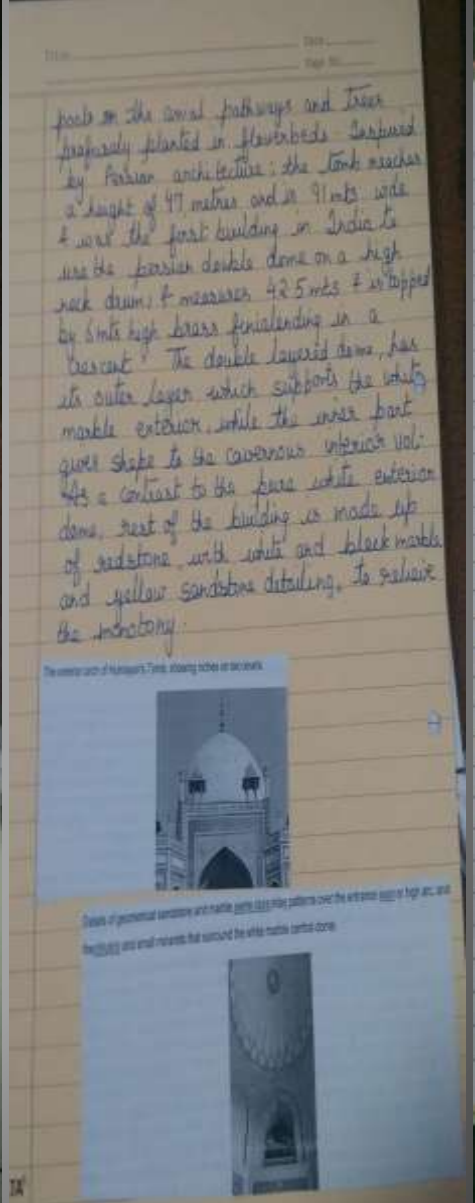 Title
Date
Page No.
pools on the canal pathways and trees
profusely planted in flowerbeds. Inspired
by Persian architecture; the tomb reaches
a height of 47 metres and is 91 mts wide
& was the first building in India to
use the persian double dome on a high
neck drum, & measures 42.5 mts & is topped
by 6 mts high brass finial ending in a
crescent. The double layered dome, has
its outer layer which supports the white
marble exterior, while the inner part
gives shape to the cavernous interior vol.
As a contrast to the pure white exterior
dome, rest of the building is made up
of redstone, with white and black marble
and yellow sandstone detailing, to relieve
the monotony.
The exterior arch of Humayun's Tomb, showing niches on two levels
Details of geometrical sandstone and marble inlay patterns over the entrance or high arc, and
the and small minarets that surround the white marble central dome.
TA